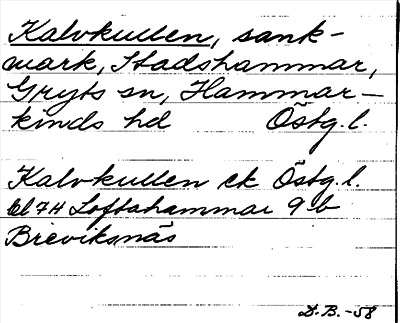 Kalvkullen, sank-
mark, Stadshammar,
Gryts sn, Hammar-
kinds hd Östg. l.
Kalvkullen ek Östg. l.
bl 74 Loftahammar 9 b
Breviksnäs
D. B. -58